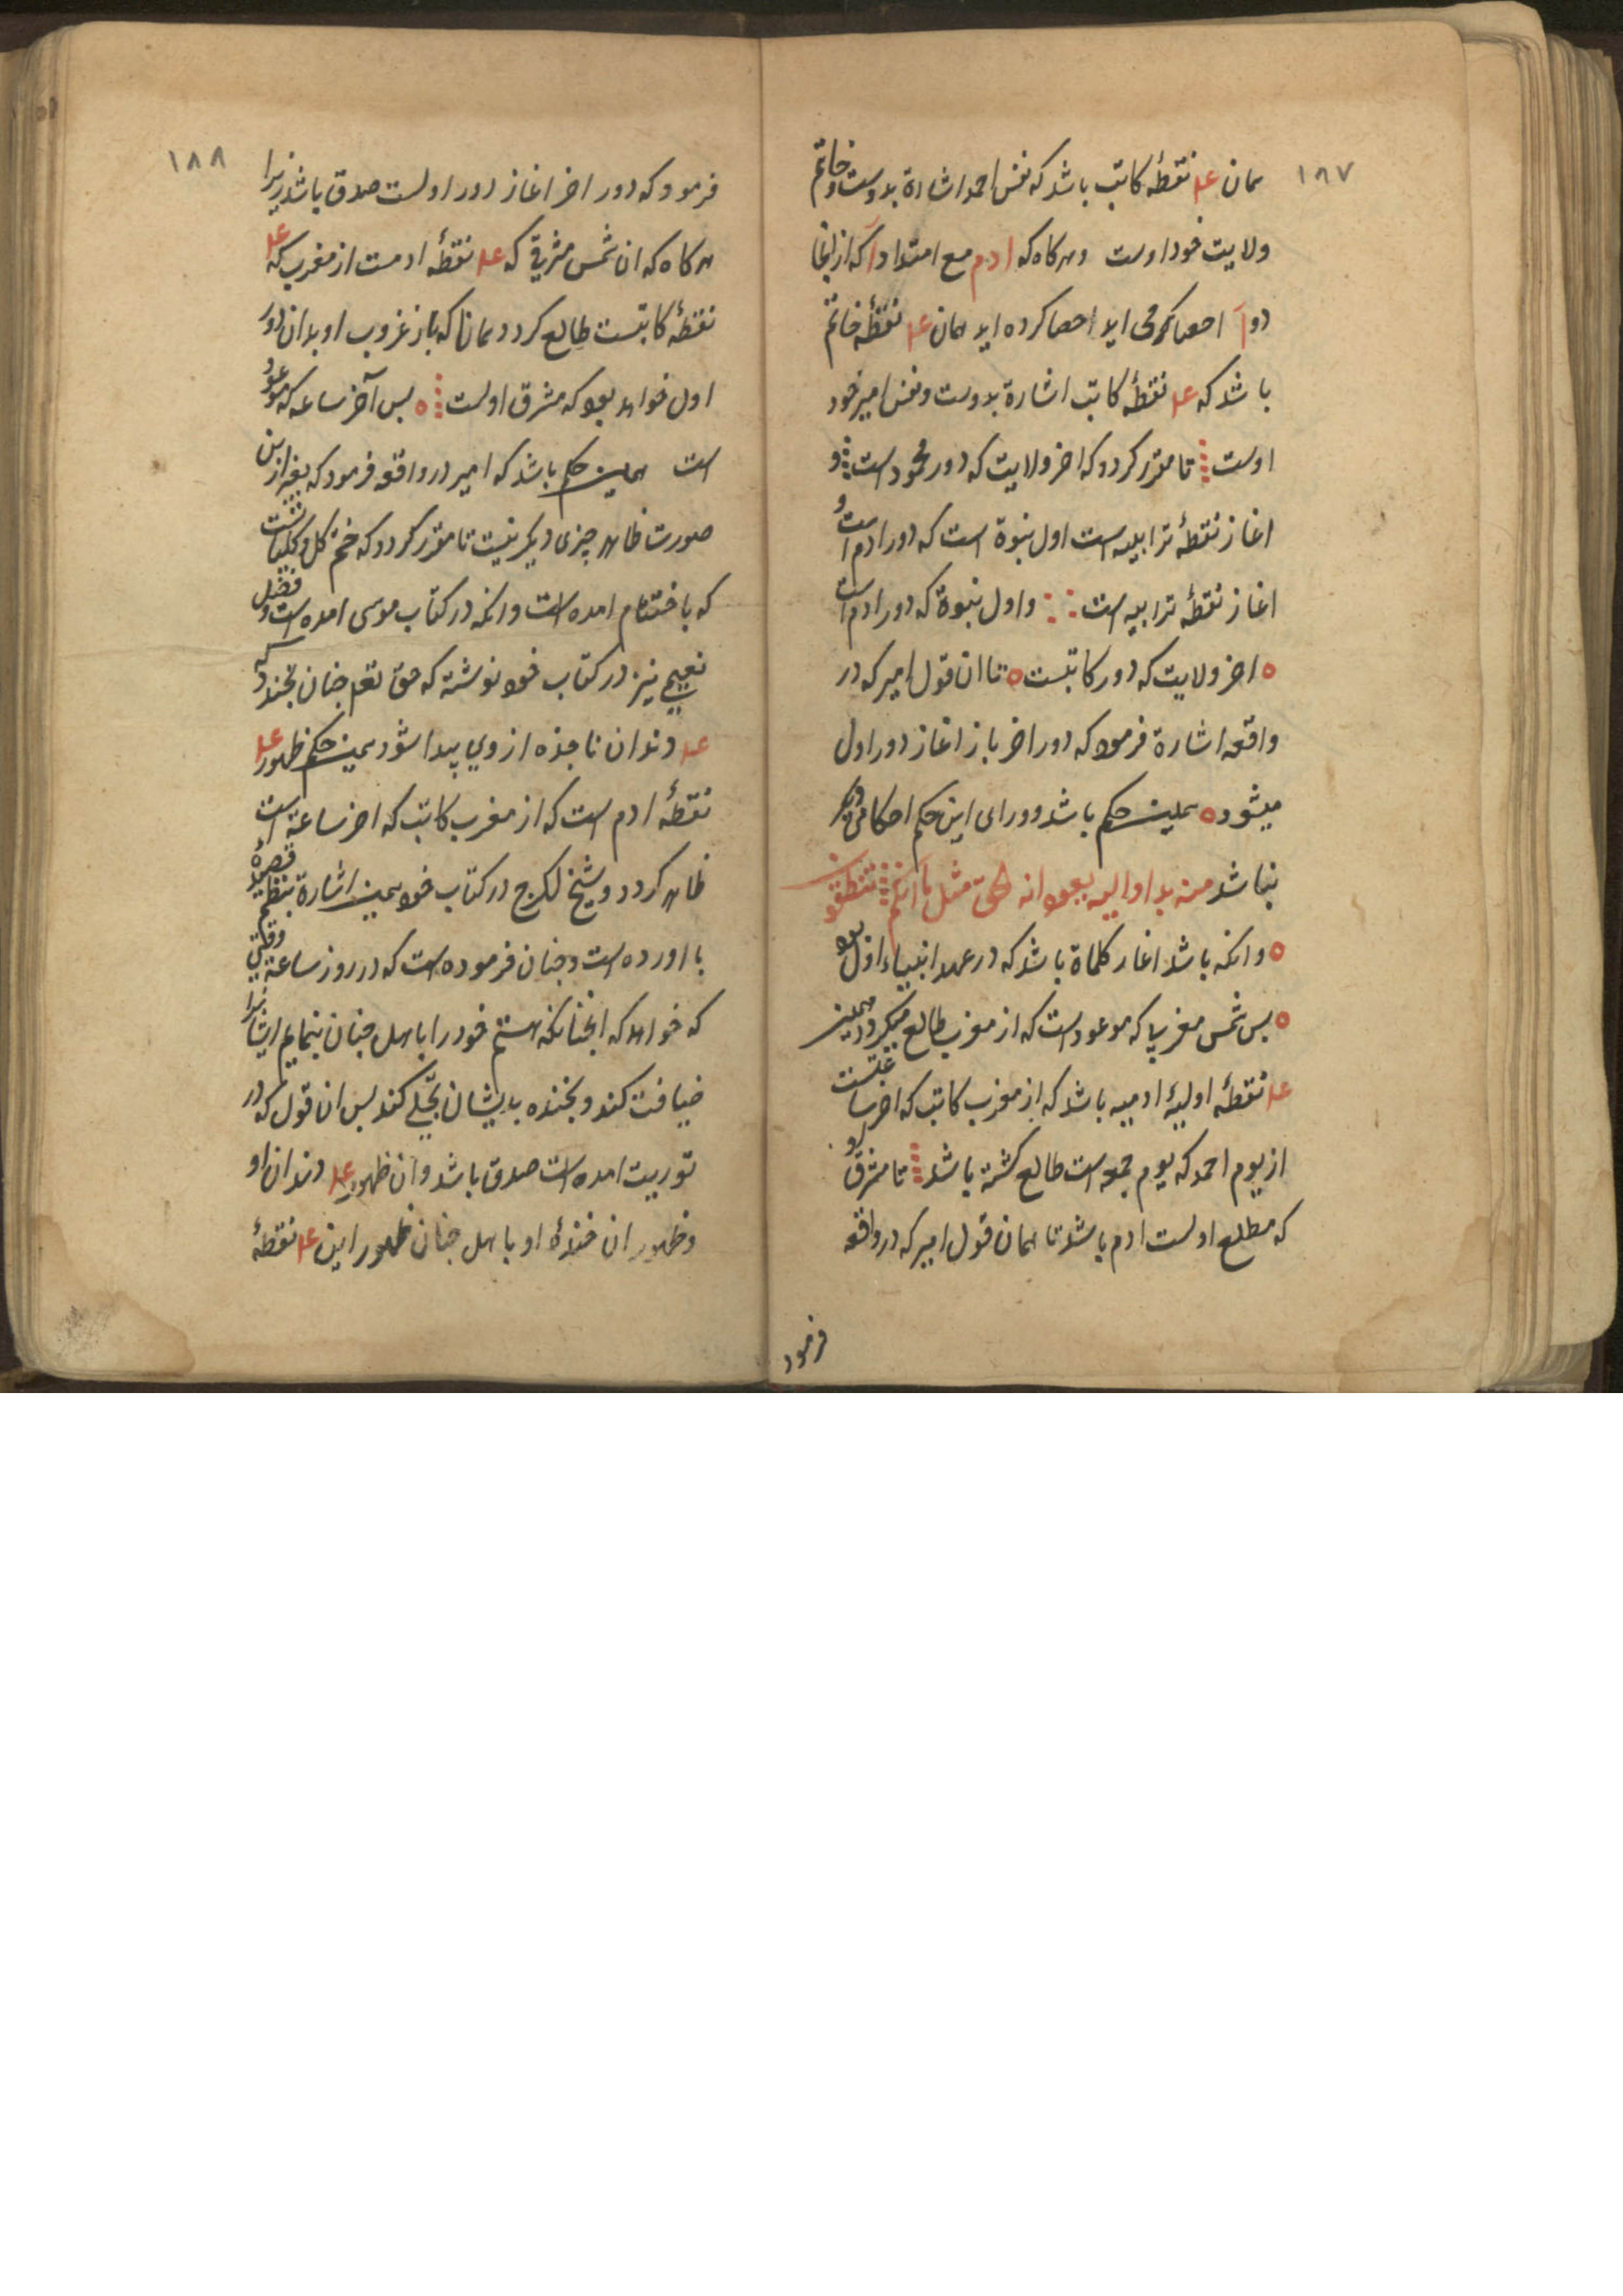 ۱۸۷
همان عد نقطهٔ کاتب باشد که نفس احمد اشارة بدوست و خاتم
ولایت خود اوست و هرکاه که ادم مع امتداد آ که از انجا
دو آ احصا کرده اید همان عد نقطهٔ خاتم
باشد که عد نقطهٔ کاتب اشارة بدوست و نفس امیر خود
اوست تا مقرر کردد که اخر ولایت که دور محمود است و
اغاز نقطهٔ ترابیه است اول نبوة است که دور ادم است و
اغاز نقطهٔ ترابیه است و اول نبوة که دور ادم است
اخر ولایت که دور کاتبست تا ان قول امیر که در
واقعه اشارة فرمود که دور اخر باز اغاز دور اول
میشود همین حکم باشد و ورای این حکم احکامی دیکر
نباشد منه بدا و الیه یعود انه لحق مثل ما انکم تنطقون
و انکه باشد اغاز کلماة باشد که در عهد انبیاء اول بود
بس شمس مغربی که موعود است که از مغرب طالع میکردد همین
عد نقطهٔ اولیهٔ ادمیه باشد که از مغرب کاتب که اخر ساعتست
از یوم احمد که یوم جمعه است طالع کشته باشد تا مشرق او
که مطلع اولست ادم باشد تا همان قول امیر که در واقعه
فرمود
۱۸۸
فرمود که دور اخر اغاز دور اولست صدق باشد زیرا
هرکاه که ان شمس مشرقی که عد نقطهٔ ادمست از مغرب که عد
نقطهٔ کاتبست طالع کردد همانا که باز غروب او بدان دور
اول خواهد بود که مشرق اولست بس آخر ساعه که موعود
است همین حکم باشد که امیر در واقعه فرمود که بغیر ازین
صورت ظاهر چیزی دیکر نیست تا مقرر کردد که ختم کل و کلیاتست
که باختتام امده است و انکه در کتاب موسی امده است و فضل
نعیمی نیز در کتاب خود نوشته که حق تعم چنان بخندد که
عد دندان ناجذه از وی پیدا شود همین حکم ظهور عد
نقطهٔ ادم است که از مغرب کاتب که اخر ساعة است
ظاهر کردد و شیخ لکرج در کتاب خود همین اشارة بنظم قصیده
با اورده است و چنان فرموده است که در روز ساعة وقتی
که خواهد که انچنانکه هستم خود را باهل جنان بنمایم ایشانرا
ضیافت کند و بخنده بدیشان تجلی کند بس ان قول که در
توریت امده است صدق باشد و ان ظهور عد دندان او
و ظهور ان خندهٔ او باهل جنان ظهور این عد نقطهٔ